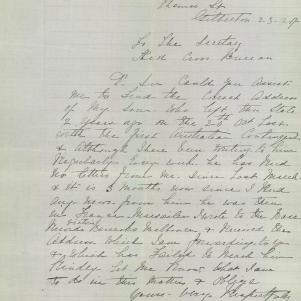 Thomas St
Atherton 23-2-17
To The Secretary
Red Cross Bureau
D Sir Could You Assist
Me to find the Correct Address
of My Son who left this State
2 years ago on the 20th Oct Last
with the First Australian Contingent
& Although I have been writing to him
Regularly Every week he has had
No letters from Me Since Last March
& it is 3 Months now since I Had
Any News from him he was then
in France I wrote to the Base
Records Barracks Melbourne & Received this
Address Which I am forwarding to you
& Which has failed to Reach him
Kindly Let Me Know What I am
to do in this Matter & Oblige
Yours Very Respectfully